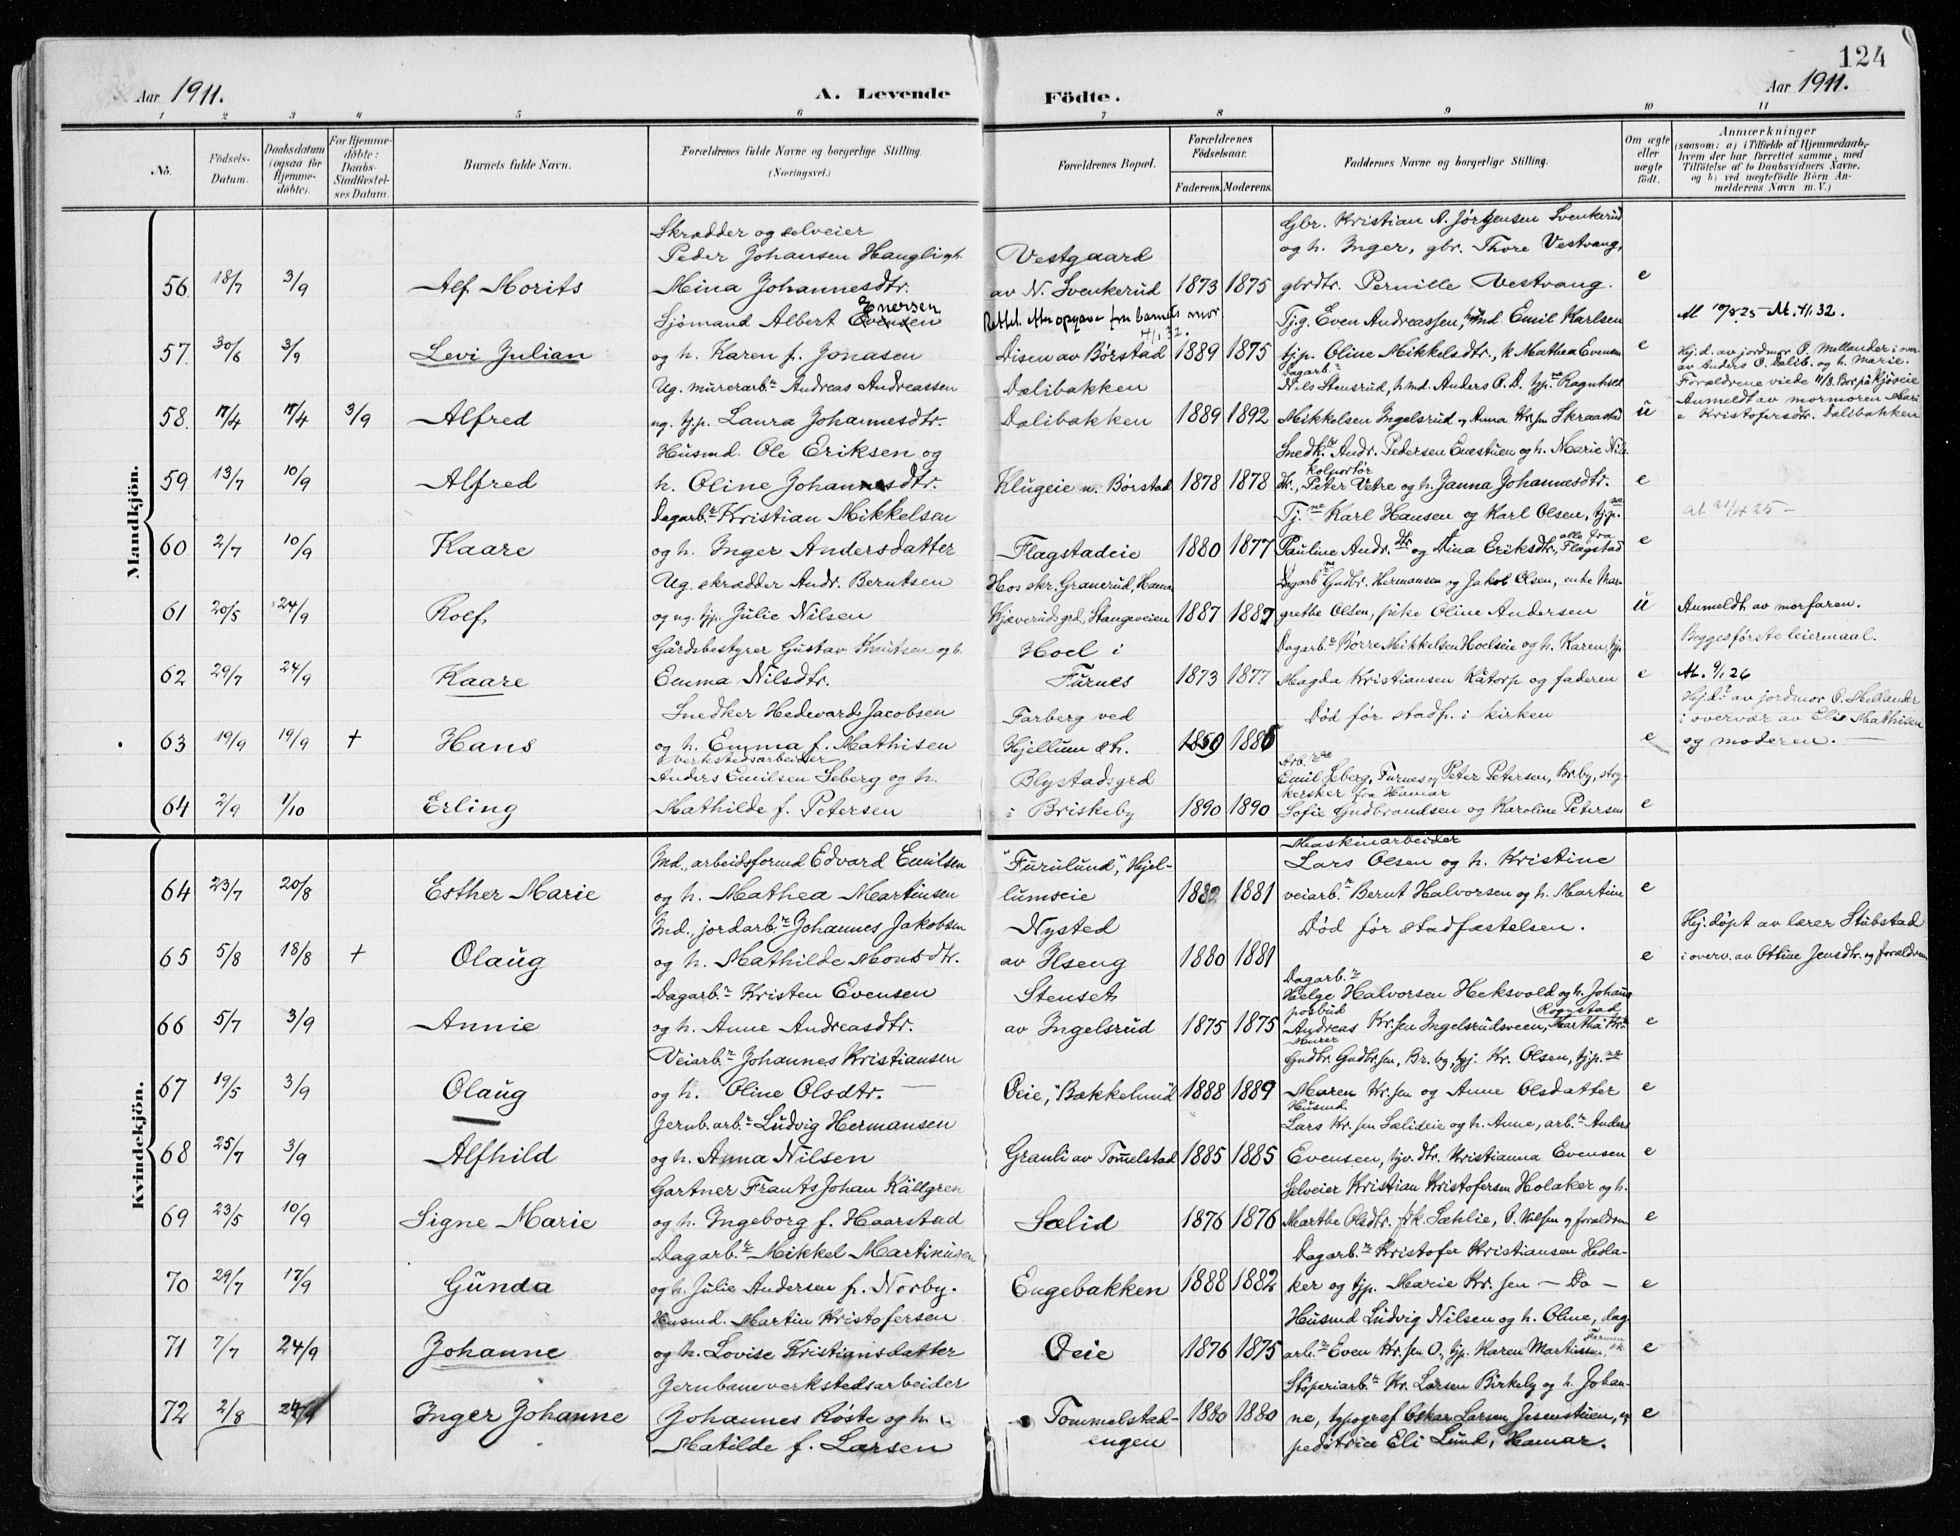 124
Aar 1911. A. Levende Födte. Aar 1911.
1 2 3 4 5 6 7 8 9 10 11
No. Födsels-Datum. Daabsdatum (ogsaa for Hjemmedøbte). For Hjemmedøbte: Daabs-Stadfæstelses Datum. Barnets fulde Navn. Forældrenes fulde Navne og borgerlige Stilling. (Næringsvei.) Forældrenes Bopæl. Forældrenes Födselsaar. Faderens. Moderens. Faddernes Navne og borgerlige Stilling. Om ægte eller uægte født. Anmærkninger (saasom: a) i Tilfælde af Hjemmedaab, hvem der har forrettet samme, med Tilföielse af to Daabsvidners Navne. og b) ved uægtefödte Börn Anmelderens Navn m. V.)
Mandkjön.
Skrædder og selveier Gbr. Kristian A. Jørgensen Svenkerud
Peder Johansen Haugli og h. Vestgaard og h. Inger, gbr. Thore Vestvang,
56 18/7 3/9 Alf Morits Mina Johannesdtr. av N. Svenkerud 1873 1875 gbrdtr. Pernille Vestvang. e
Enersen
Sjömand Albert Evensen Rettet efter opgave fra barnets mor 4/1.32. Tj.g. Even Andreassen, Emil Karlsen At 10/8.25 - At. 4/1.32.
57 30/6 3/9 Levi Julian og h. Karen f. Jonasen Disen av Børstad 1889 1875 tjp. Oline Mikkelsdtr, Mathea Evensen e Hj.d. av jordmor O. Mellander i over
av Anders O. Dalib. og h. Marie.
Ug. murerarbr Andreas Andreassen Dalibakken Dagarb. Nils Stensrud, h.md. Anders O. D. tjp. Ragnhild Forældrene viede
58 17/4 17/4 3/9 Alfred ug. tj.p. Laura Johannesdtr. Dalibakken 1889 1892 Mikkelsen Ingelsrud og Anna Kr.sen Skraastad ü Anmeldt av mormoren Marie Kristofersdtr. Dalibakken
Husmd. Ole Eriksen og Snedkr. Andr. Pedersen Enestuen og h. Marie Nils
kolportør
59 13/7 10/9 Alfred h. Oline Johannesdtr. Klugeie u. Børstad 1878 1878 dtr., Peter Vetre og h. Janna Johannesdtr. e
Dagarb.r Kristian Mikkelsen Tj.ne Karl Hansen og Karl Olsen, tj.p.ne At 21/4 25 -
60 2/7 10/9 Kaare og h. Inger Andersdatter Flagstadeie 1880 1877 Pauline Andr. dtr og Nina Eriksdtr, alle fra Flagstad e
Ug. skrædder Andr. Berntsen Hos skr. Granerud, Hamar Dagarb.ne Gudbr. Hermansen og Jakob Olsen, enke Mar-
61 20/5 24/9 Rolf og ug. tjp. Julie Nilsen Kjæverudsgrd, Stangeveien 1887 1887 grethe Olsen, pike Oline Andersen ü Anmeldt av morfaren.
Gårdsbestyrer Gustav Knutsen og h. Hoel i Dagarb.r Börre Mikkelsen Hoelseie og h. Karen, tjp. Begges første leiermaal.
62 29/7 24/9 Kaare Emma Nilsdtr. Furnes 1873 1877 Magda Kristiansen Kätorp og faderen e At. 9/1 26
Snedker Hedevard Jacobsen Farberg ved Død før stadf. i kirken Hj.d. av jordmor O. Mellander
63 19/9 19/9 + Hans og h. Emma f. Mathisen Hjellum st. 1850 1886 e i overvær av Elis Mathisen
og moderen. —
verkstedsarbeider
Anders Emilsen Seberg og h. Blystadsgrd Arb.rne Emil Seberg, Furnes og Peter Petersen, Br.by, stry-
kersker fra Hamar
64 2/9 1/10 Erling Mathilde f. Petersen i Briskeby 1890 1890 Sofie Gudbrandsen og Karoline Petersen e
Kvindekjön.
Maskinarbeider
Ind., arbeidsformd Edvard Emilsen "Furulund", Hjel- Lars Olsen og h. Kristine
64 23/7 20/8 Esther Marie og h. Mathea Martinsen lumseie 1882 1881 veiarb.r Bernt Halvorsen og h. Martine e
Ind., jordarb.r Johannes Jakobsen Nysted Død før stadfæstelsen. Hj. døpt av lærer Stubstad
65 5/8 18/8 + Olaug og h. Mathilde Monsdtr. av Hseng 1880 1881 e i overv. av Ottine Jensdtr. og forældrene
Dagarb.r Kristen Evensen Stenset Dagarb.r Helge Halvorsen Heksvold og h. Johana
postbud Rogstad
66 5/7 3/9 Annie og h. Anne Andreasdtr. av Ingelsrud 1875 1875 Andreas Kr.sen Ingelsrudsveen, Martha Kr. e
Murer
Veiarb.r Johannes Kristiansen Gudbr. Gudbr.sen, Br.by, tjg. Kr. Olsen, tj.p.ne
67 19/5 3/9 Olaug og h. Oline Olsdtr. — Oeie, "Bækkelund" 1888 1889 Maren Kr.sen og Anne Olsdatter e
Husmd.
Jernb.arb.r Ludvig Hermansen Lars Kr.sen Sælideie og h. Anne, arb.r Anders
68 25/7 3/9 Alfhild og h. Anna Nilsen Granli av Tommelstad 1885 1885 Evensen, tjv. dtr. Kristianna Evensen e
Gartner Frants Johan Källgren Selveier Kristian Kristofersen Holaker og h.
69 23/5 10/9 Signe Marie og h. Ingeborg f. Haarstad Sælid 1876 1876 Marthe Olsdtr. frk. Sæhlie, O. Nilsen og forældrene e
Dagarb.r Mikkel Martinusen Dagarb.r Kristofer Kristiansen Hola-
70 29/7 17/9 Gunda og h. Julie Andersen f. Norby. Engebakken 1888 1882 ker og tjp. Marie Kr.sen — Do — e
Husmd. Martin Kristofersen Husmd Ludvig Nilsen og h. Oline, dag-
71 7/7 24/9 Johanne og h. Lovise Kristiansdatter Oeie 1876 1875 arb.r Even Kr.sen O., tjp. Karen Martinsen, Furnes e
Jernbaneverkstedsarbeider Støperiarb.r Kr. Larsen Birkely og h. Johan-
72 2/8 24/9 Inger Johanne Johannes Røste og h. Tommelstad- 1880 1880 ne, typograf Oskar Larsen Jesenstuen, ex- e
Matilde f. Larsen engen peditrice Eli Lund, Hamar.